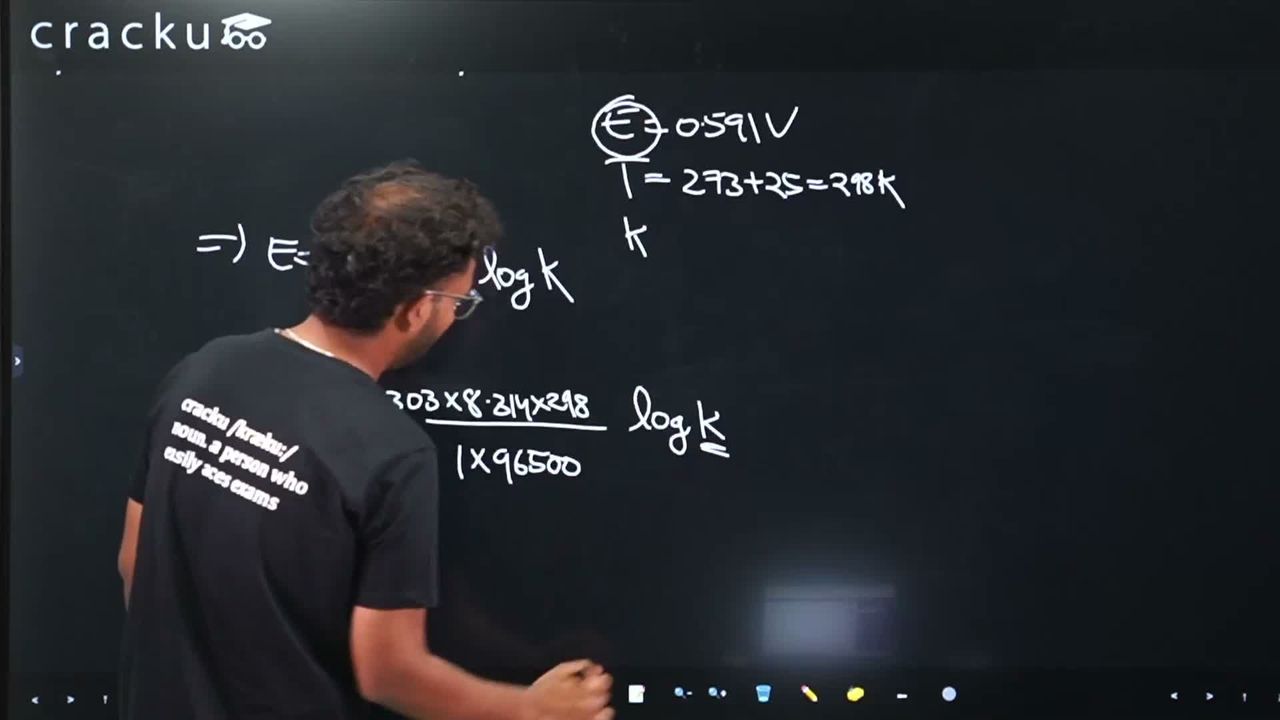 cracku
E = 0.591V
T = 273+25=298K
K
=) E=
log K
303×8.314×298
log K
1×96500
cracku /kræku:/
noun. a person who
easily aces exams